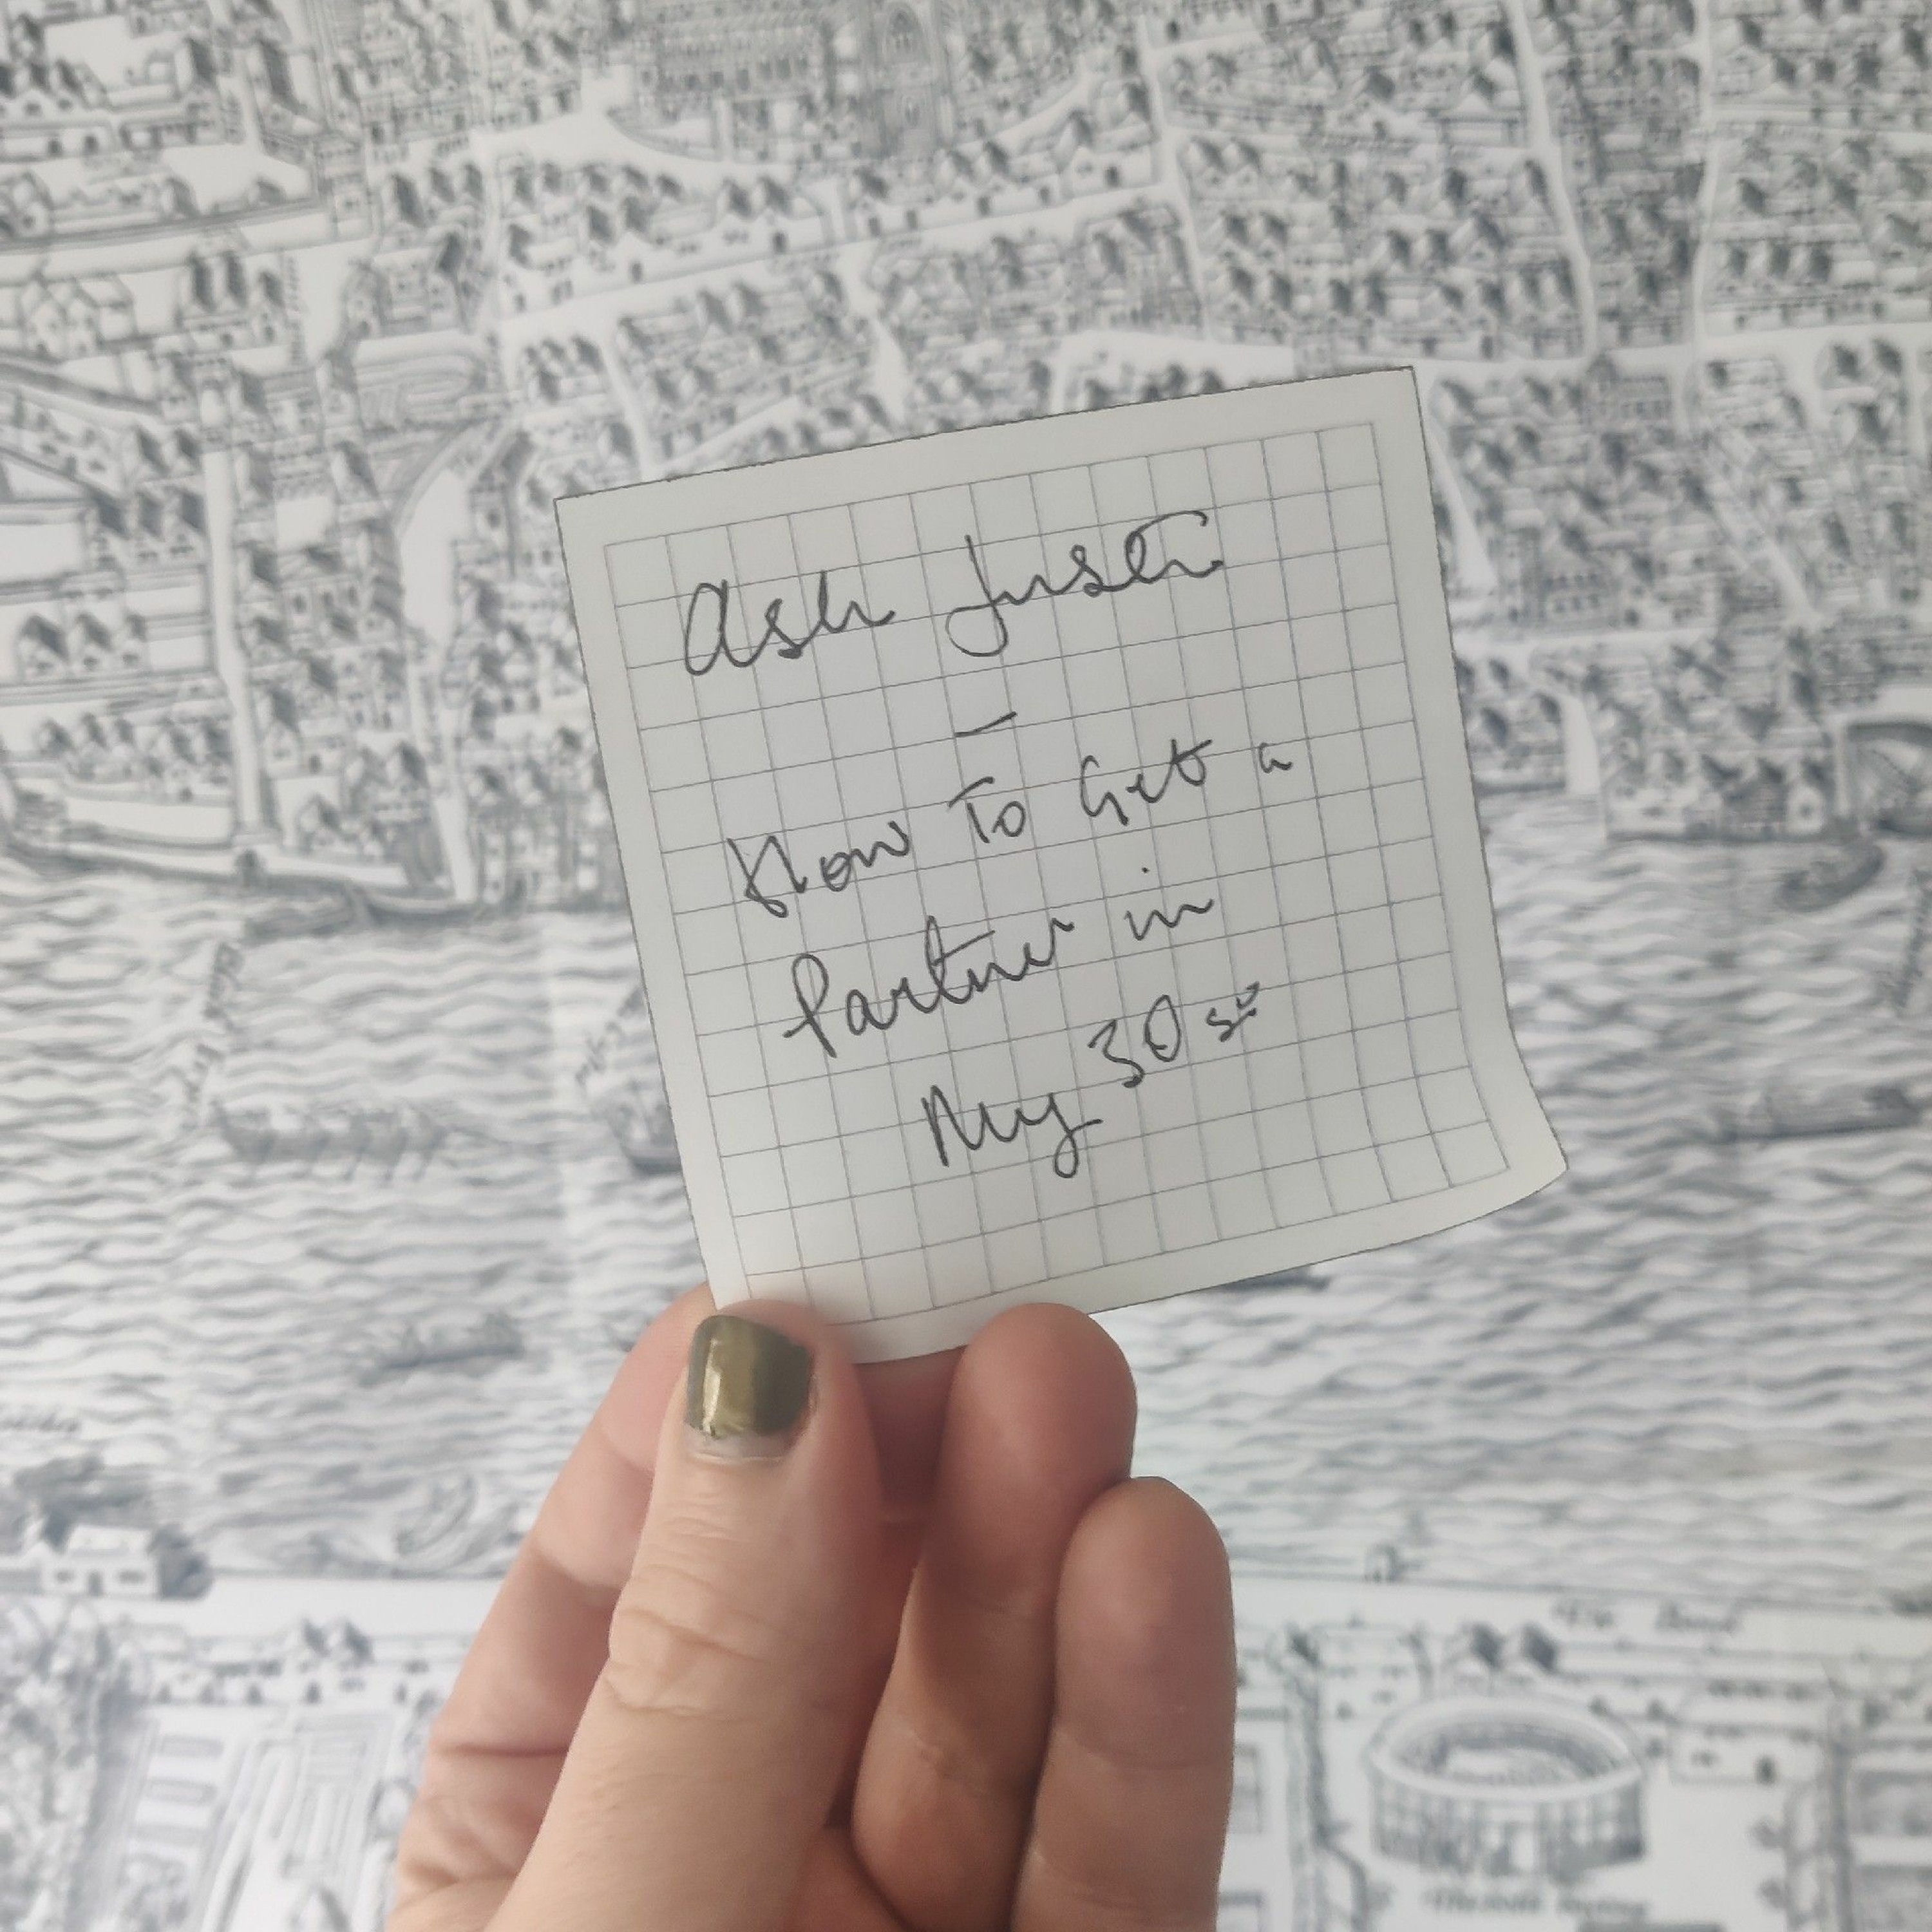 Ask Justin
—
How To Get a
Partner in
My 30s